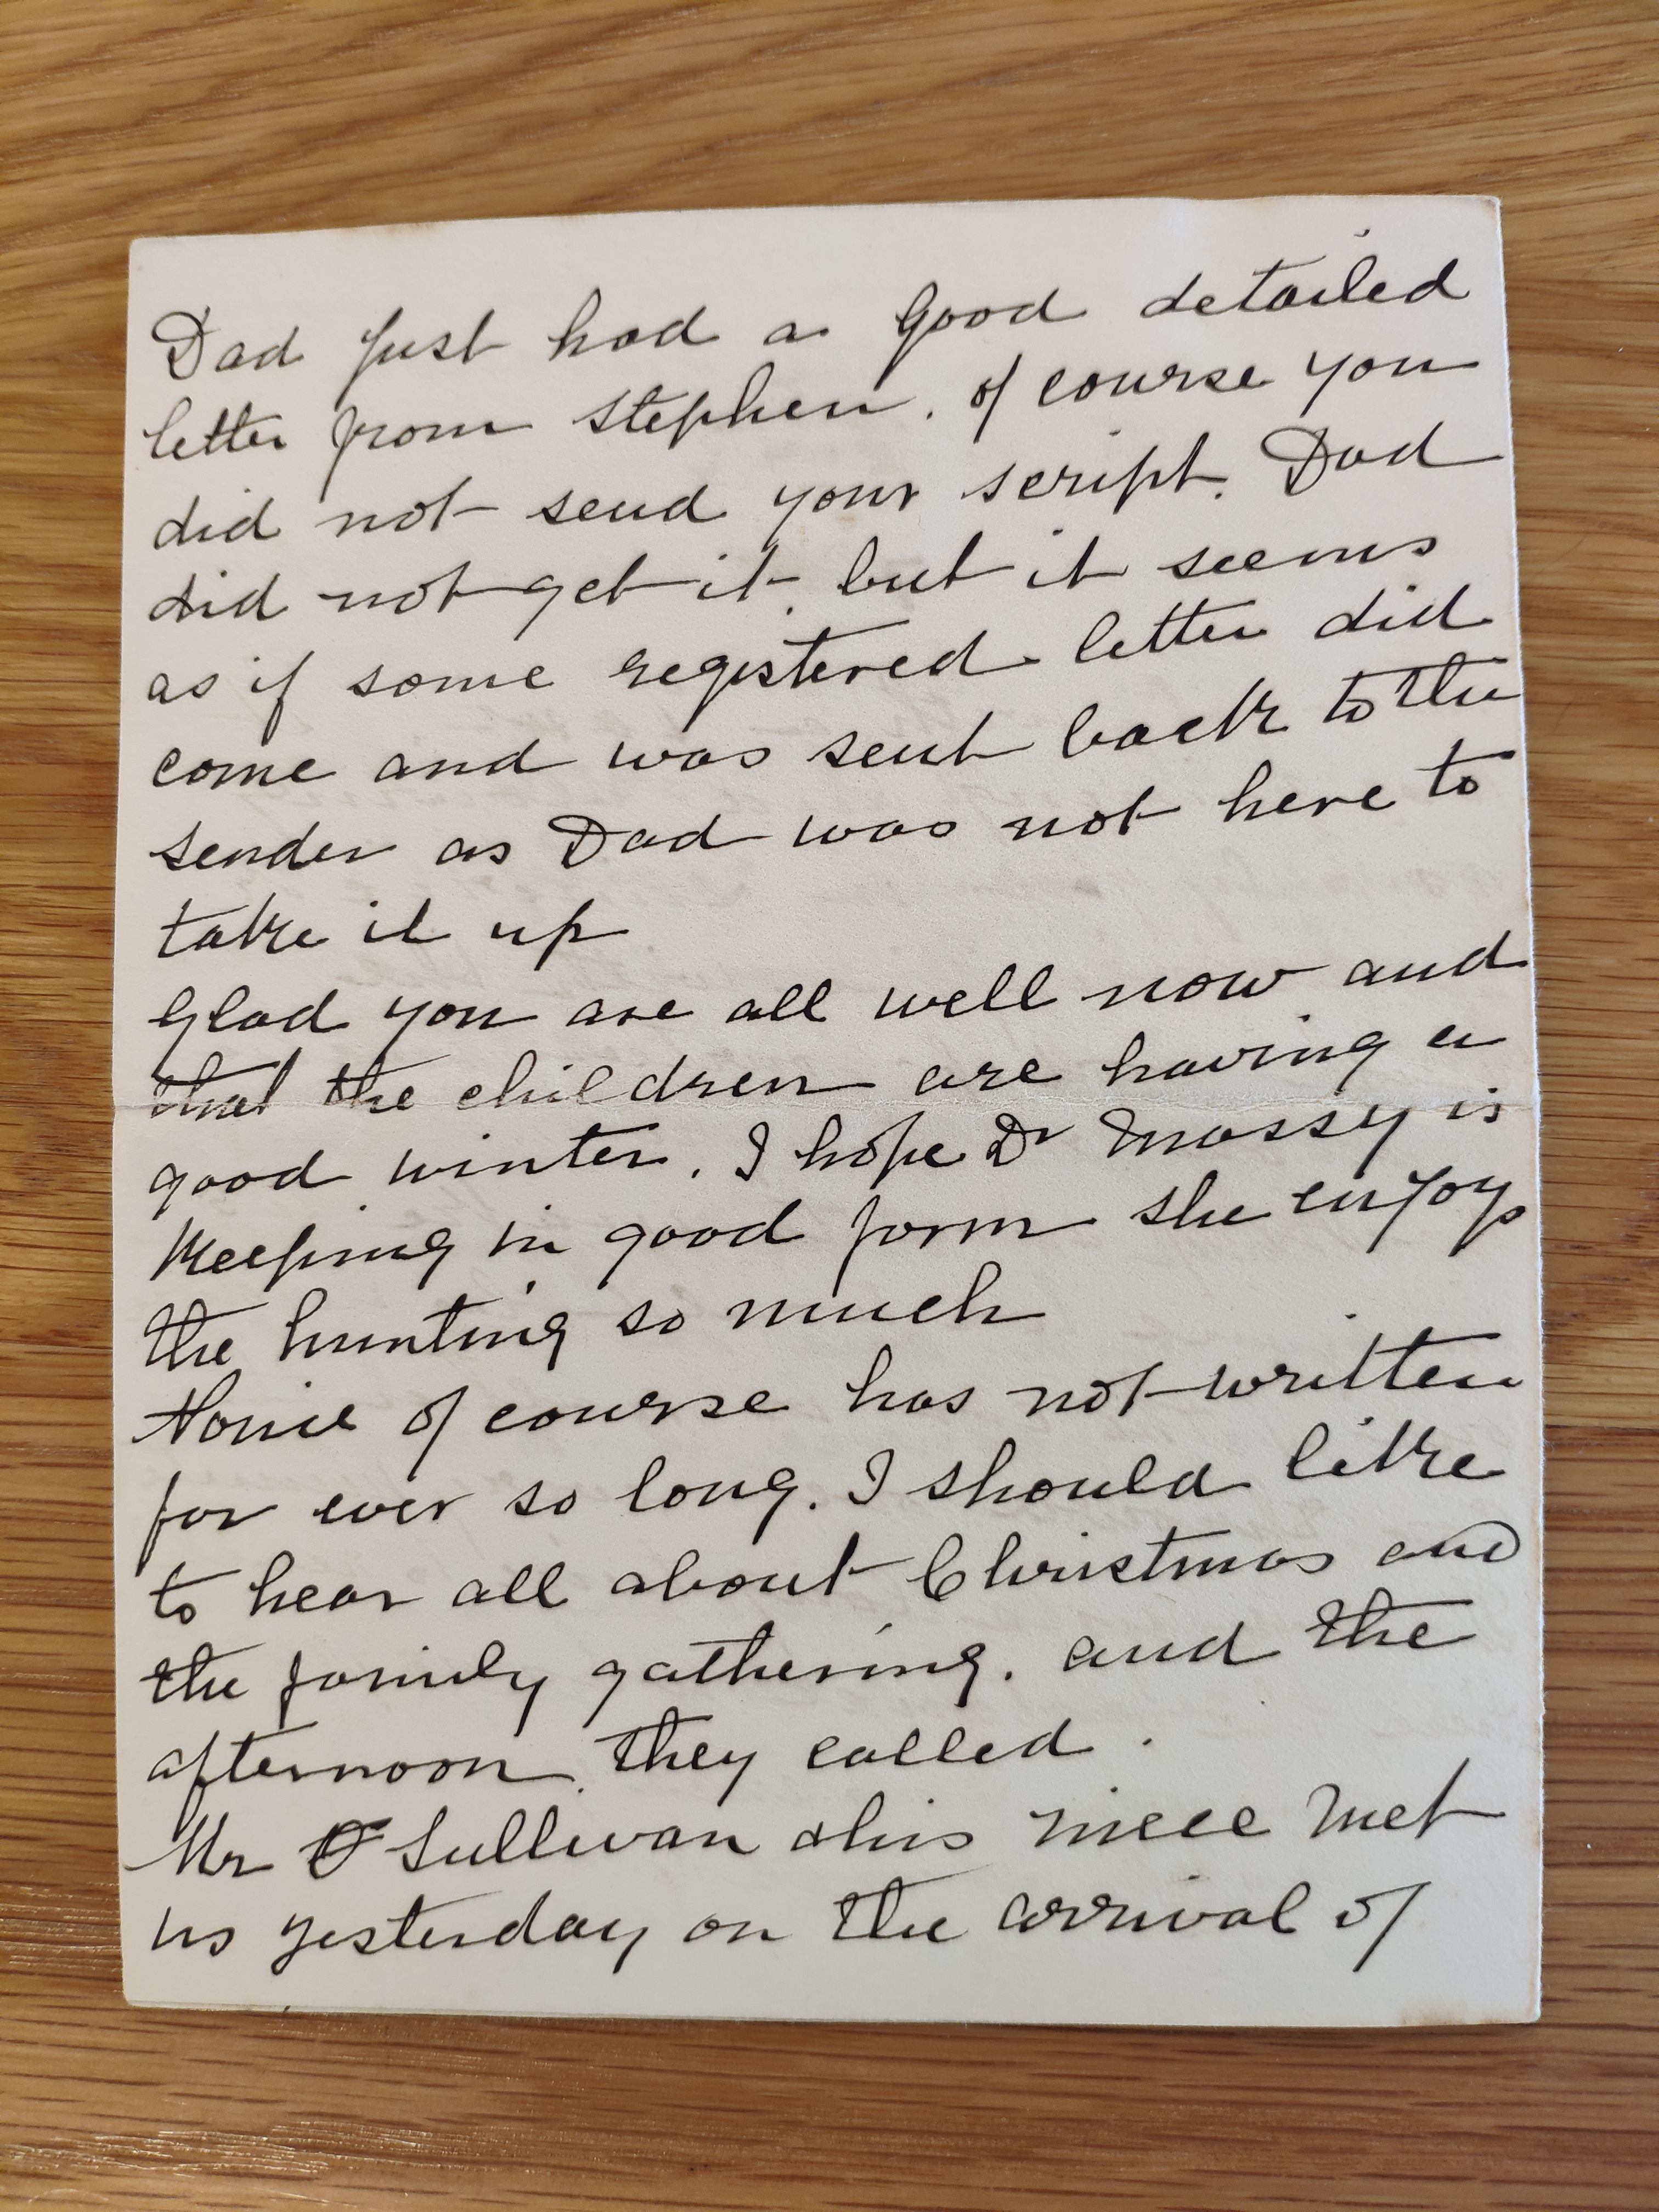 Dad just had a good detailed
letter from Stephen. of course you
did not send your script. Dad
did not get it. but it seems
as if some registered letter did
come and was sent back to the
sender as Dad was not here to
take it up
Glad you are all well now and
that the children are having a
good winter. I hope Dr Massy is
keeping in good form she enjoys
the hunting so much
Nonie of course has not written
for ever so long. I should like
to hear all about Christmas and
the family gathering. and the
afternoon they called.
Mr O'Sullivan & his niece met
us yesterday on the arrival of